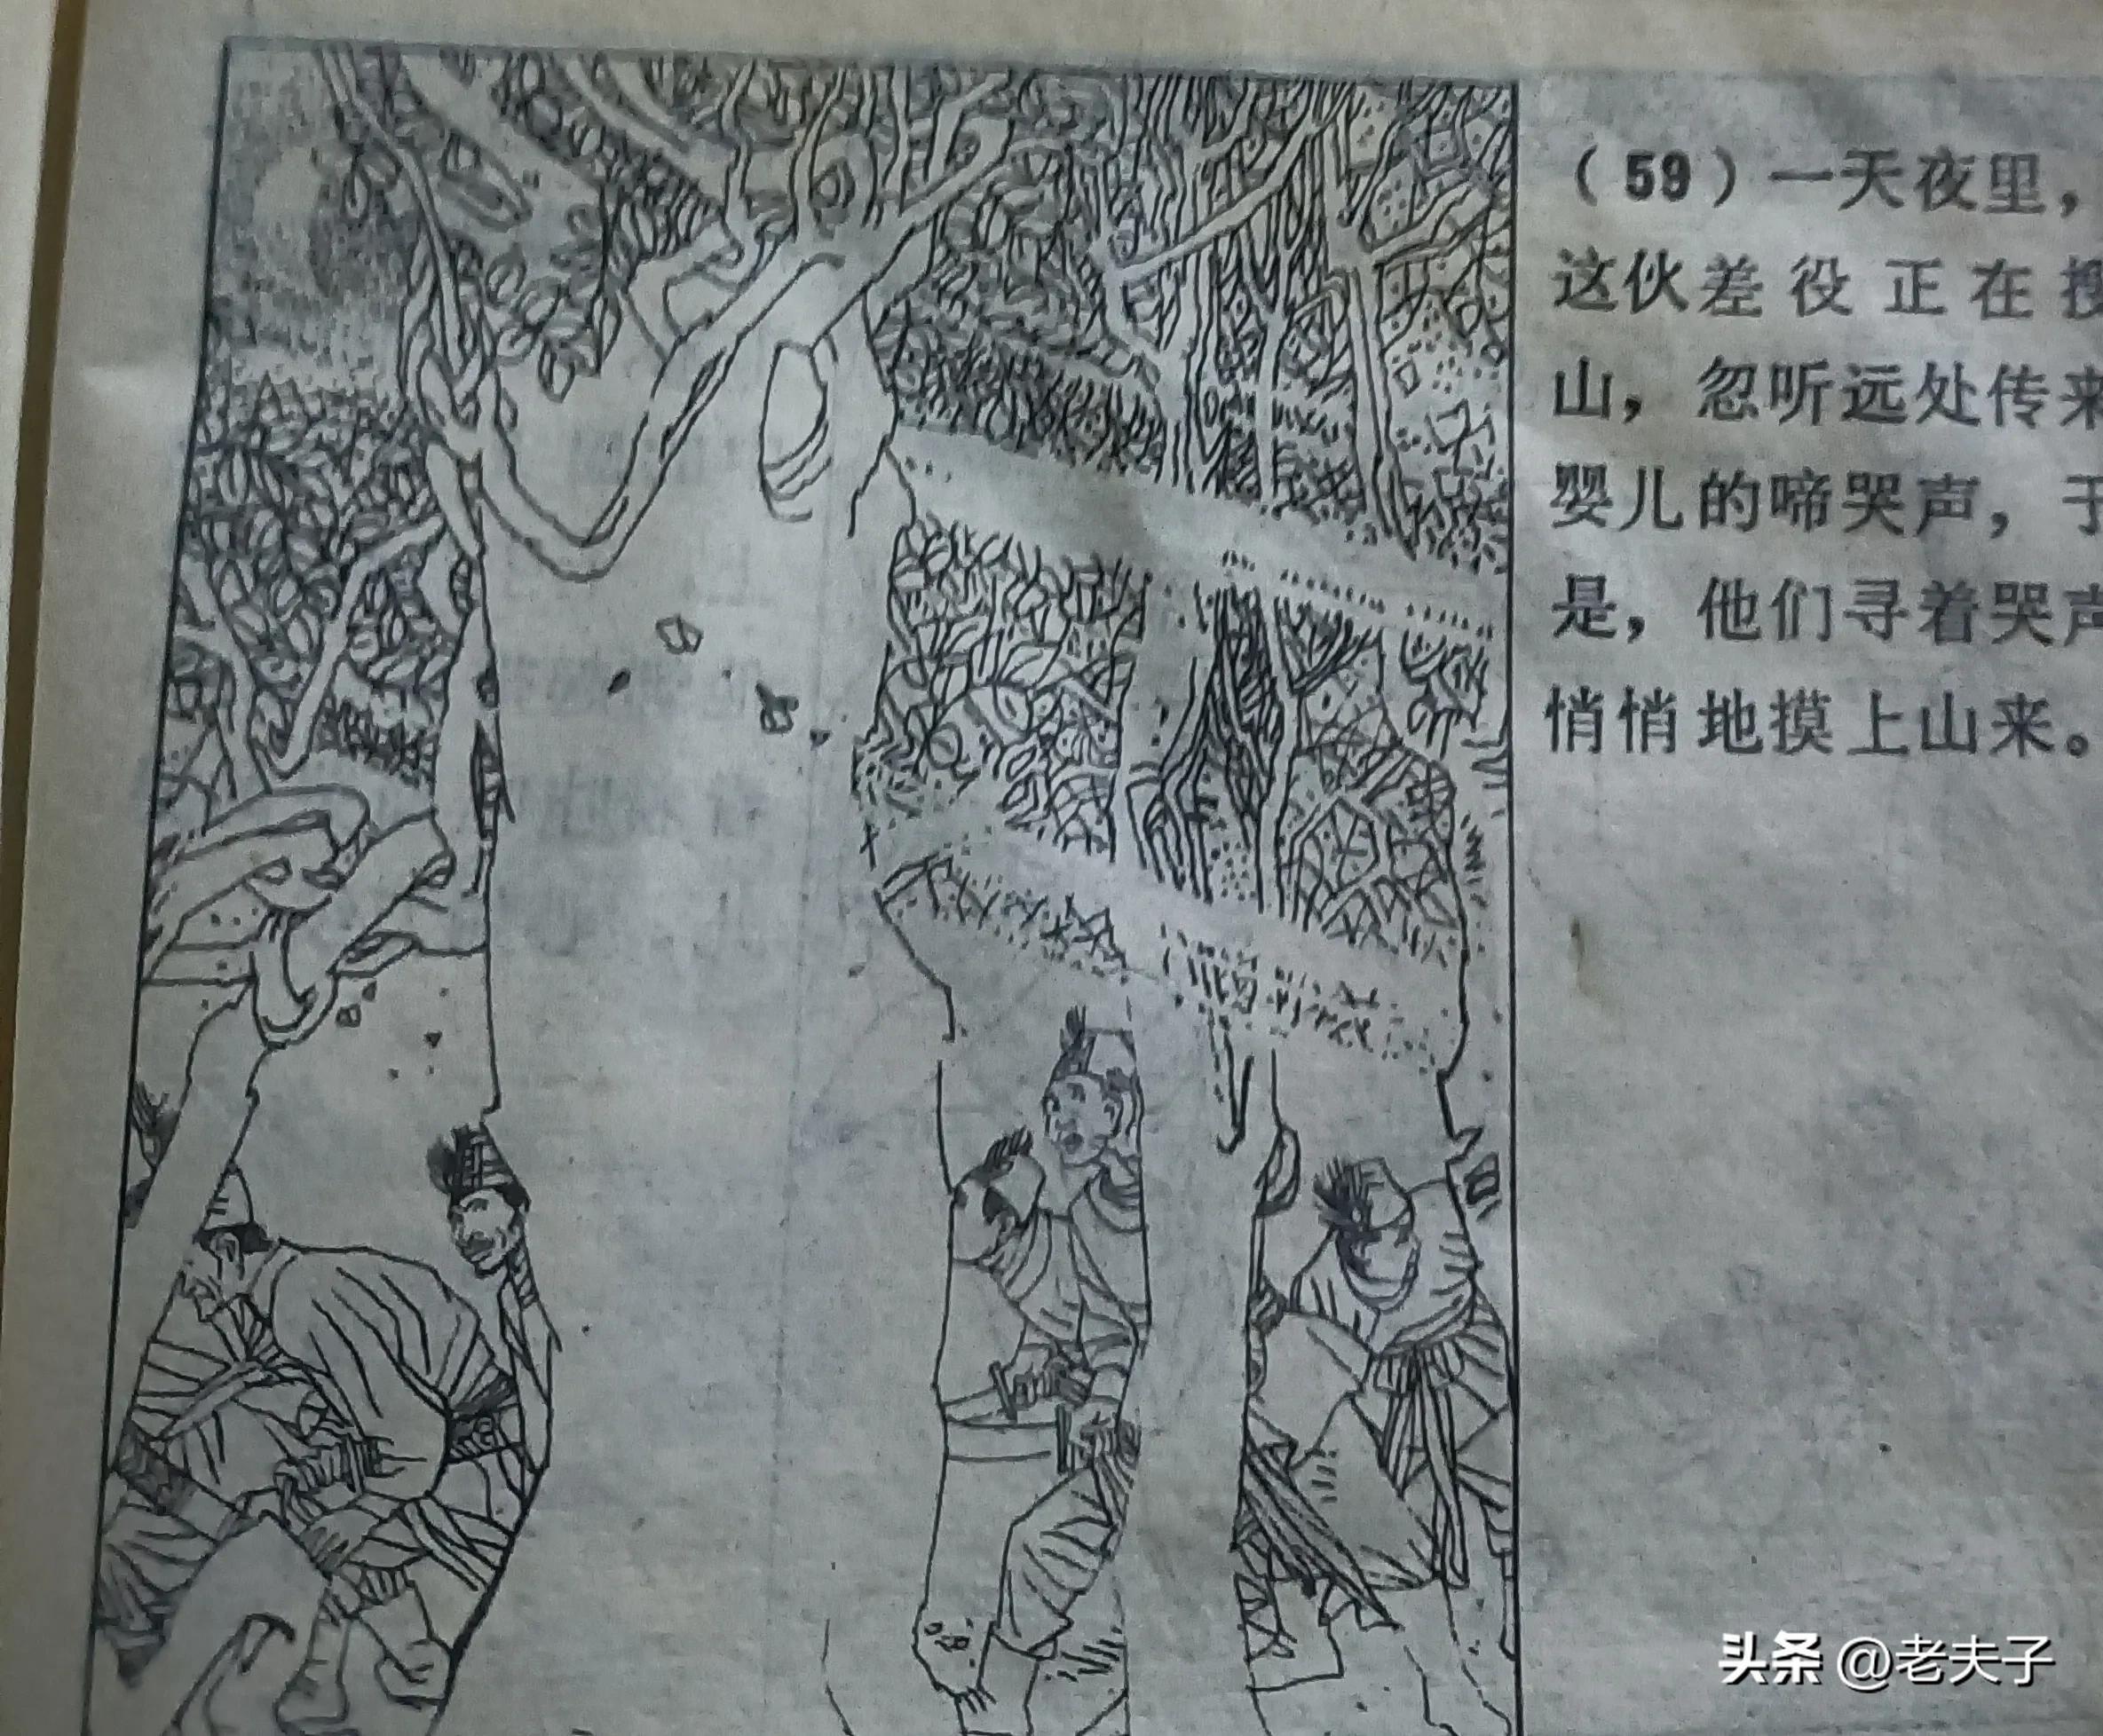 （59）一天夜里，
这伙差役正在搜
山，忽听远处传来
婴儿的啼哭声，于
是，他们寻着哭声
悄悄地摸上山来。
头条 @老夫子